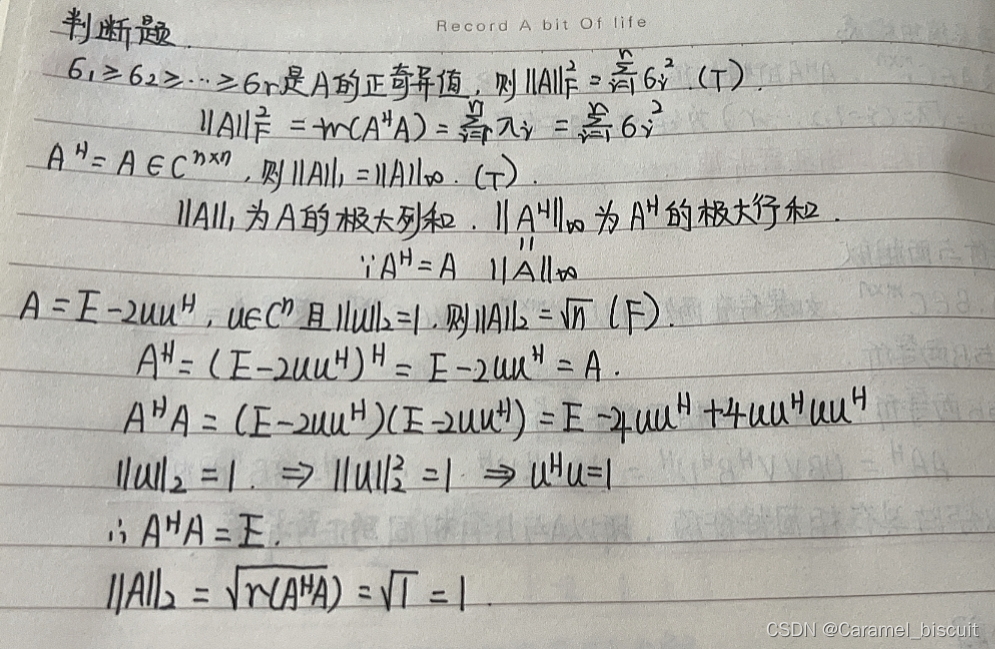 Record A bit Of life
判断题.
σ₁≥σ₂≥…≥σr是A的正奇异值,则||A||²F = Σⁿᵢ₌₁ σᵢ². (T).
||A||²F = tr(AᴴA) = Σⁿᵢ₌₁ λᵢ = Σⁿᵢ₌₁ σᵢ²
Aᴴ=A∈Cⁿˣⁿ,则||A||₁=||A||∞. (T).
||A||₁为A的极大列和. ||Aᴴ||∞为Aᴴ的极大行和.
∵Aᴴ=A ||A||∞
A=E-2uuᴴ, u∈Cⁿ且||u||₂=1.则||A||₂=√n (F).
Aᴴ=(E-2uuᴴ)ᴴ=E-2uuᴴ=A.
AᴴA=(E-2uuᴴ)(E-2uuᴴ)=E-4uuᴴ+4uuᴴuuᴴ
||u||₂=1. ⇒ ||u||₂²=1. ⇒ uᴴu=1
∴AᴴA=E.
||A||₂=√r(AᴴA)=√1=1.
CSDN @Caramel_biscuit